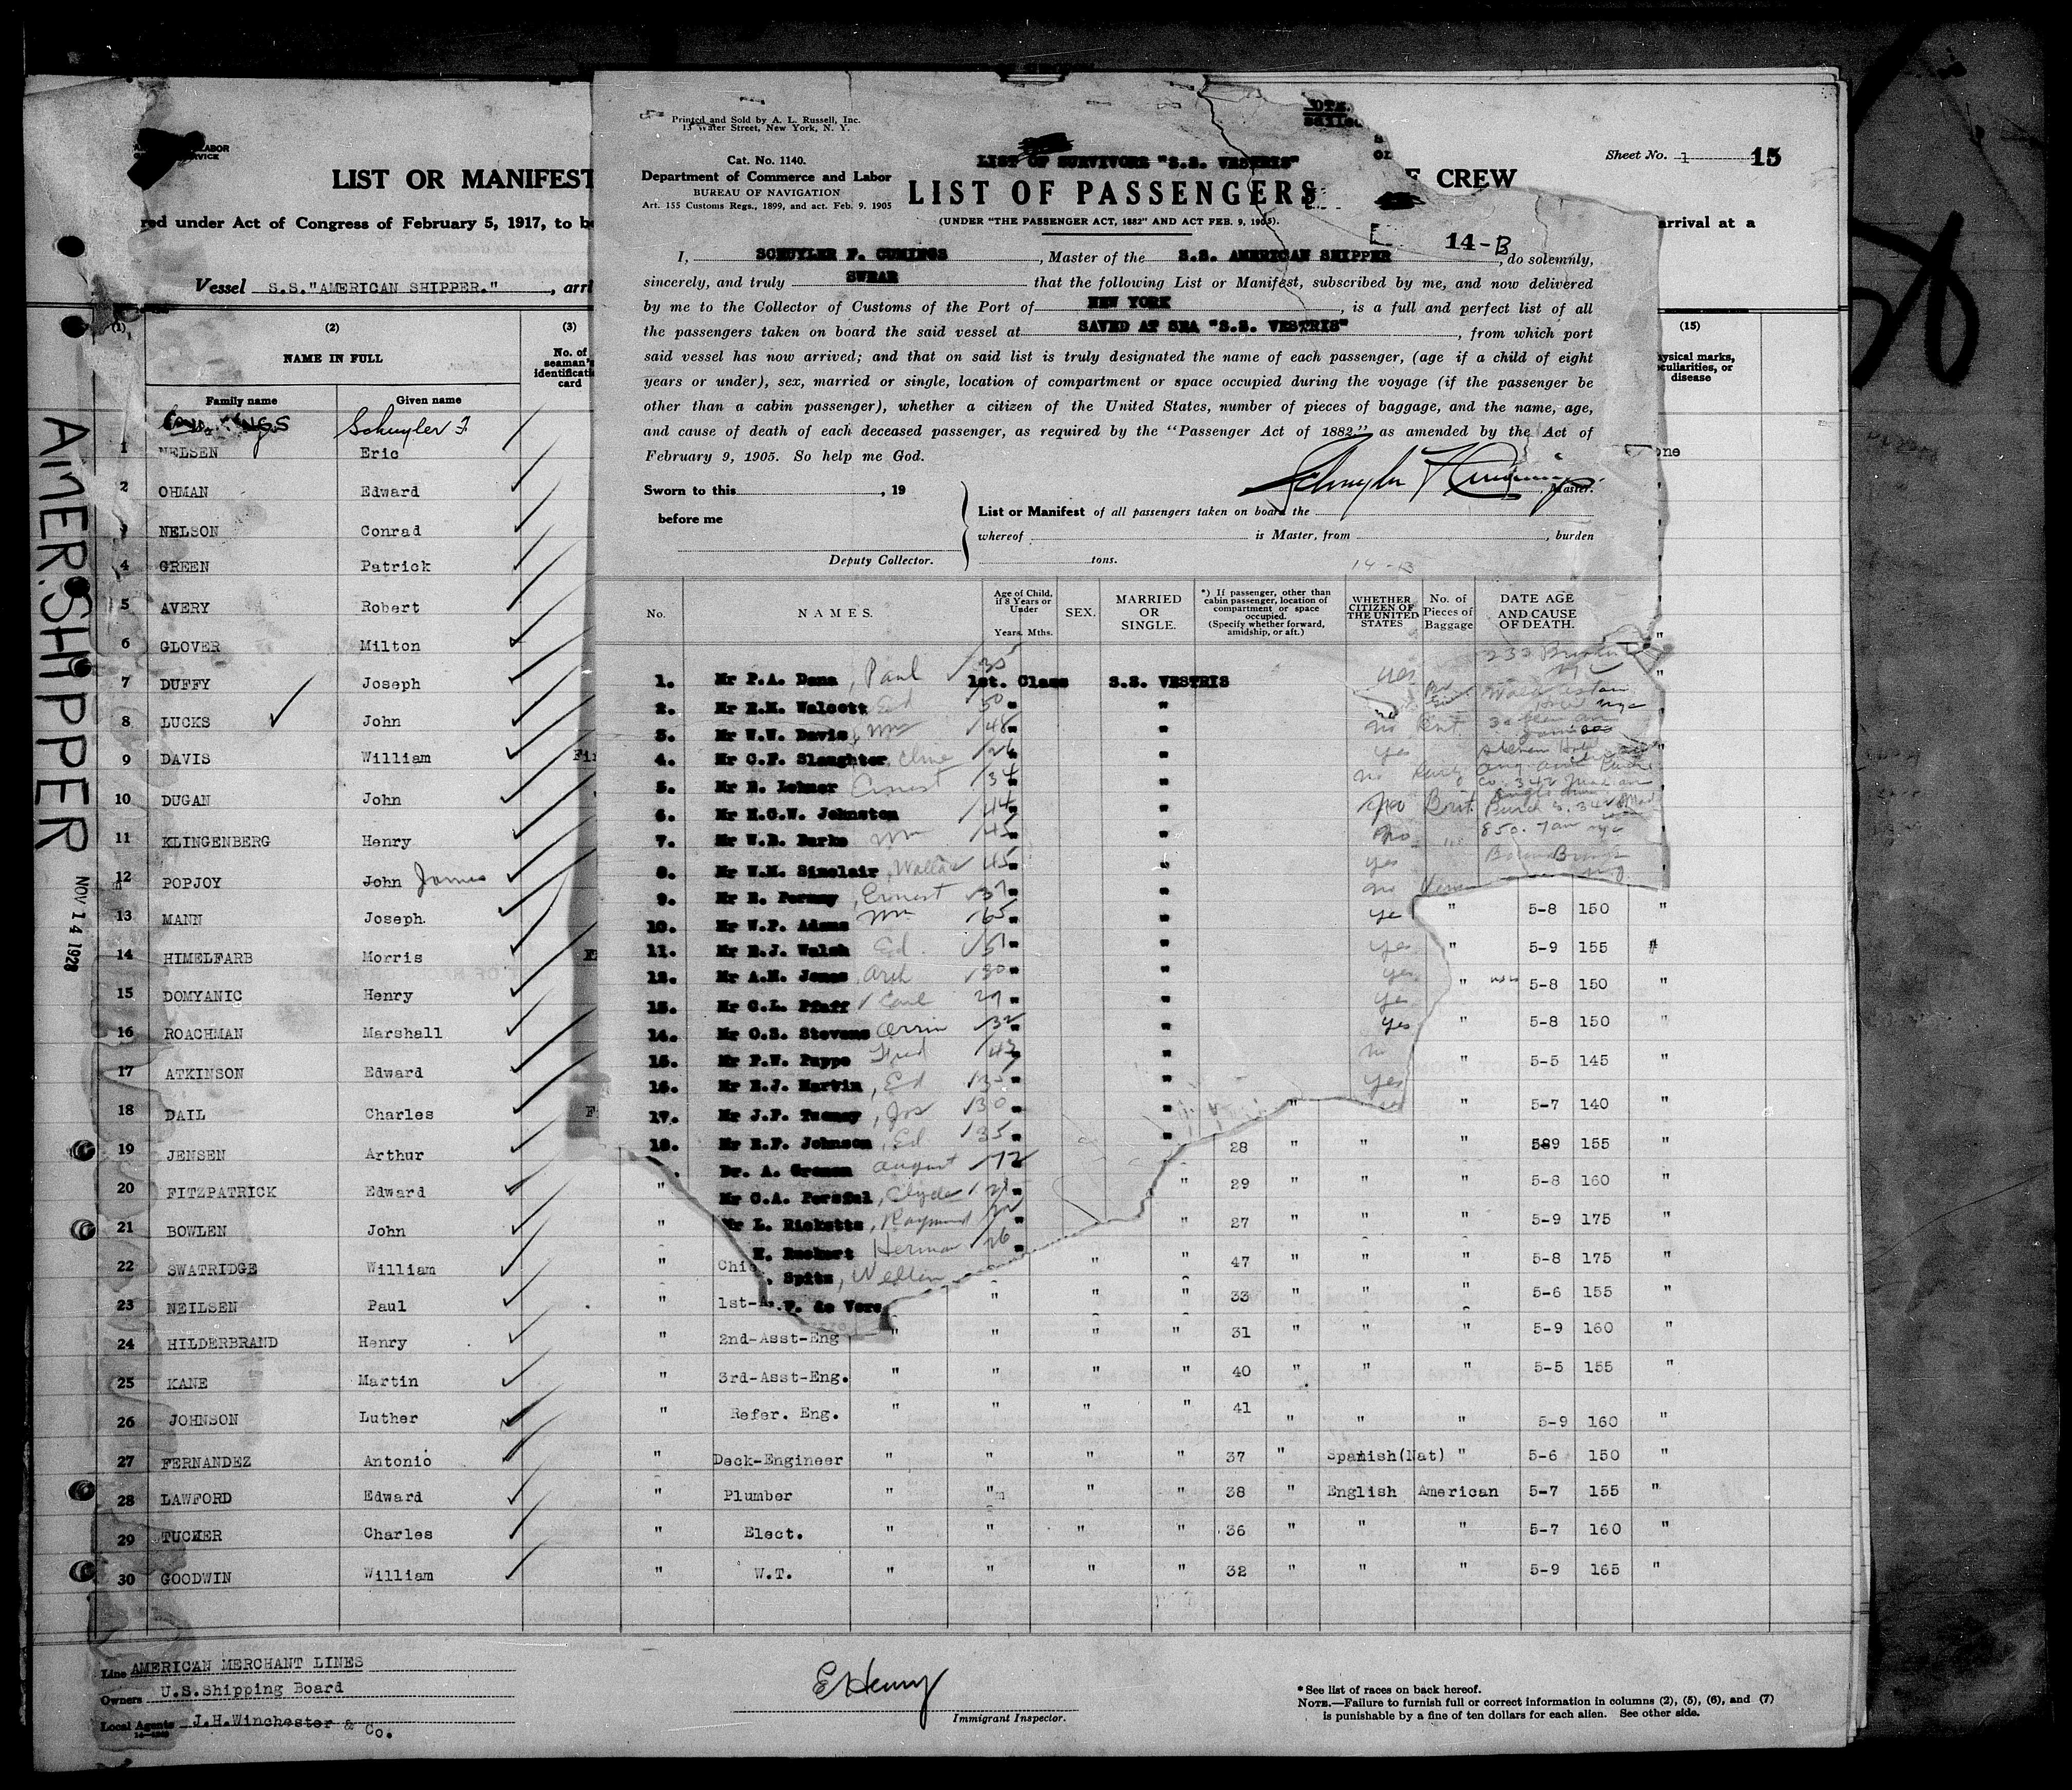 LABOR
SERVICE
LIST OR MANIFEST
red under Act of Congress of February 5, 1917, to b
Vessel S.S."AMERICAN SHIPPER." , arri
(1) (2) (3)
NAME IN FULL
No. of seaman's identificati card
Family name Given name
Schuyler F
1 NELSEN Eric
2 OHMAN Edward
3 NELSON Conrad
4 GREEN Patrick
5 AVERY Robert
6 GLOVER Milton
7 DUFFY Joseph
8 LUCKS John
9 DAVIS William
10 DUGAN John
11 KLINGENBERG Henry
12 POPJOY John James
13 MANN Joseph
14 HIMELFARB Morris
15 DOMYANIC Henry
16 ROACHMAN Marshall
17 ATKINSON Edward
18 DAIL Charles
19 JENSEN Arthur
20 FITZPATRICK Edward
21 BOWLEN John
22 SWATRIDGE William
23 NEILSEN Paul
24 HILDERBRAND Henry
25 KANE Martin
26 JOHNSON Luther
27 FERNANDEZ Antonio
28 LAWFORD Edward
29 TUCKER Charles
30 GOODWIN William
AMER. SHIPPER
NOV 14 1928
Printed and Sold by A. L. Russell, Inc.
13 Water Street, New York, N. Y.
Cat. No. 1140.
Department of Commerce and Labor
BUREAU OF NAVIGATION
Art. 155 Customs Regs., 1899, and act. Feb. 9. 1905
LIST OF SURVIVORS "S.S. VESTRIS"
LIST OF PASSENGERS
(UNDER "THE PASSENGER ACT, 1882" AND ACT FEB. 9, 1905).
14-B
I, SCHUYLER F. CUMINGS , Master of the S.S. AMERICAN SHIPPER , do solemnly,
sincerely, and truly SWEAR that the following List or Manifest, subscribed by me, and now delivered
by me to the Collector of Customs of the Port of NEW YORK , is a full and perfect list of all
the passengers taken on board the said vessel at SAVED AT SEA "S.S. VESTRIS" , from which port
said vessel has now arrived; and that on said list is truly designated the name of each passenger, (age if a child of eight
years or under), sex, married or single, location of compartment or space occupied during the voyage (if the passenger be
other than a cabin passenger), whether a citizen of the United States, number of pieces of baggage, and the name, age,
and cause of death of each deceased passenger, as required by the "Passenger Act of 1882," as amended by the Act of
February 9, 1905. So help me God.
Schuyler F Cumings Master.
Sworn to this , 19
before me
Deputy Collector.
List or Manifest of all passengers taken on board the
whereof is Master, from , burden
tons.
14-B
No. NAMES. Age of Child, if 8 Years or Under Years. Mths. SEX. MARRIED OR SINGLE. *) If passenger, other than cabin passenger, location of compartment or space occupied. (Specify whether forward, amidship, or aft.) WHETHER CITIZEN OF THE UNITED STATES No. of Pieces of Baggage DATE AGE AND CAUSE OF DEATH.
1. Mr P.A. Dana , Paul 1st. Class S.S. VESTRIS yes
2. Mr E.M. Walcott Ed 50 " "
3. Mr W.W. Davis, Wm 48 " " no Brit.
4. Mr C.F. Slaughter, Cline 26 " " yes
5. Mr E. Lehner Ernest 34 " " no
6. Mr H.C.W. Johnston 44 " " Brit.
7. Mr W.R. Burke Wm 45 " " no
8. Mr W.M. Sinclair, Wallace 45 " " yes
9. Mr E. Formay, Ernest 37 " " no
10. Mr W.P. Adams Wm 65 " " ye
11. Mr E.J. Walsh Ed. 51 " " yes
12. Mr A.H. Jones Arch 30 " " yes
13. Mr C.L. Pfaff Carl 29 " " ye
14. Mr O.S. Stevens Orrin 32 " " yes
15. Mr F.W. Puppe Fred 43 " " no
16. Mr E.J. Martin, Ed 35 " " yes
17. Mr J.F. Twomey, Jos 30 " "
18. Mr E.F. Johnson, Ed. 35 " "
Dr. A. Groman August 72
Mr C.A. Persful, Clyde "
Mr L. Ricketts, Raymond "
H. Rueckert Herman 26 "
. Spitz,
. F. de Vere
Sheet No. 1 15
F CREW
arrival at a
(15)
ysical marks, culiarities, or disease
one
" 5-8 150 "
" 5-9 155 "
" 5-8 150 "
" 5-8 150 "
" 5-5 145 "
" " 5-7 140 "
28 " " " 589 155 "
" " 29 " " " 5-8 160 "
" " 27 " " " 5-9 175 "
" Chie " " 47 " " " 5-8 175 "
" 1st-A " " " 33 " " " 5-6 155 "
" 2nd-Asst-Eng " " " " 31 " " " 5-9 160 "
" 3rd-Asst-Eng. " " " " 40 " " " 5-5 155 "
" Refer. Eng. " " " " 41 " " " 5-9 160 "
" Deck-Engineer " " " " 37 " Spanish(Nat) " 5-6 150 "
" Plumber " " " " 38 " English American 5-7 155 "
" Elect. " " " " 36 " " " 5-7 160 "
" W.T. " " " " 32 " " " 5-9 165 "
Line AMERICAN MERCHANT LINES
Owners U.S.Shipping Board
Local Agents J.H.Winchester & Co.
E Henry
Immigrant Inspector.
* See list of races on back hereof.
NOTE.—Failure to furnish full or correct information in columns (2), (5), (6), and (7)
is punishable by a fine of ten dollars for each alien. See other side.